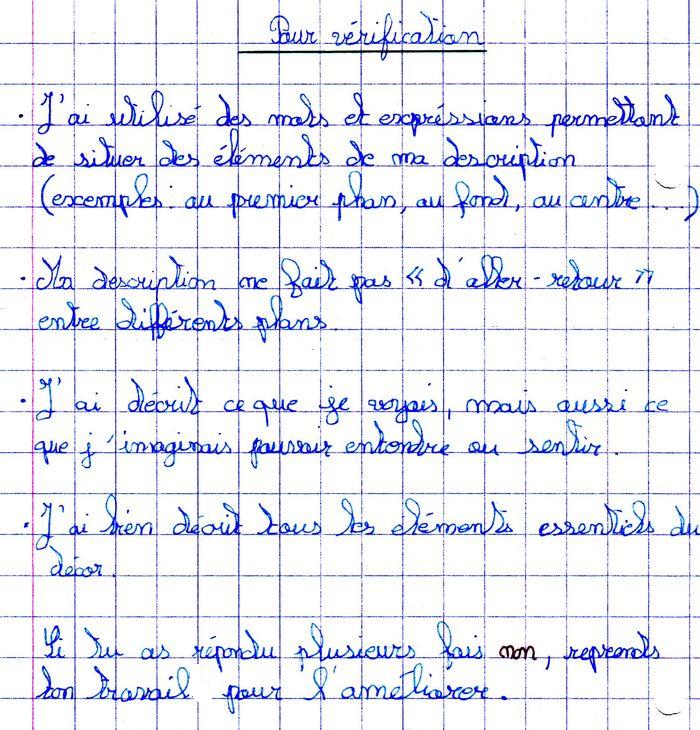 Pour vérification
. J'ai utilisé des mots et expréssians permettant
de situer des éléments de ma description
(exemples : au premier plan, au fond, au centre ...)
. Ma description ne fait pas « d'aller - retour »
entre différents plans.
. J'ai décrit ce que je voyais, mais aussi ce
que j'imaginais pouvoir entendre ou sentir.
. J'ai bien décrit tous les eléments essentiels du
décor.
Si tu as répondu plusieurs fois non, reprends
ton travail pour l'améliorer.